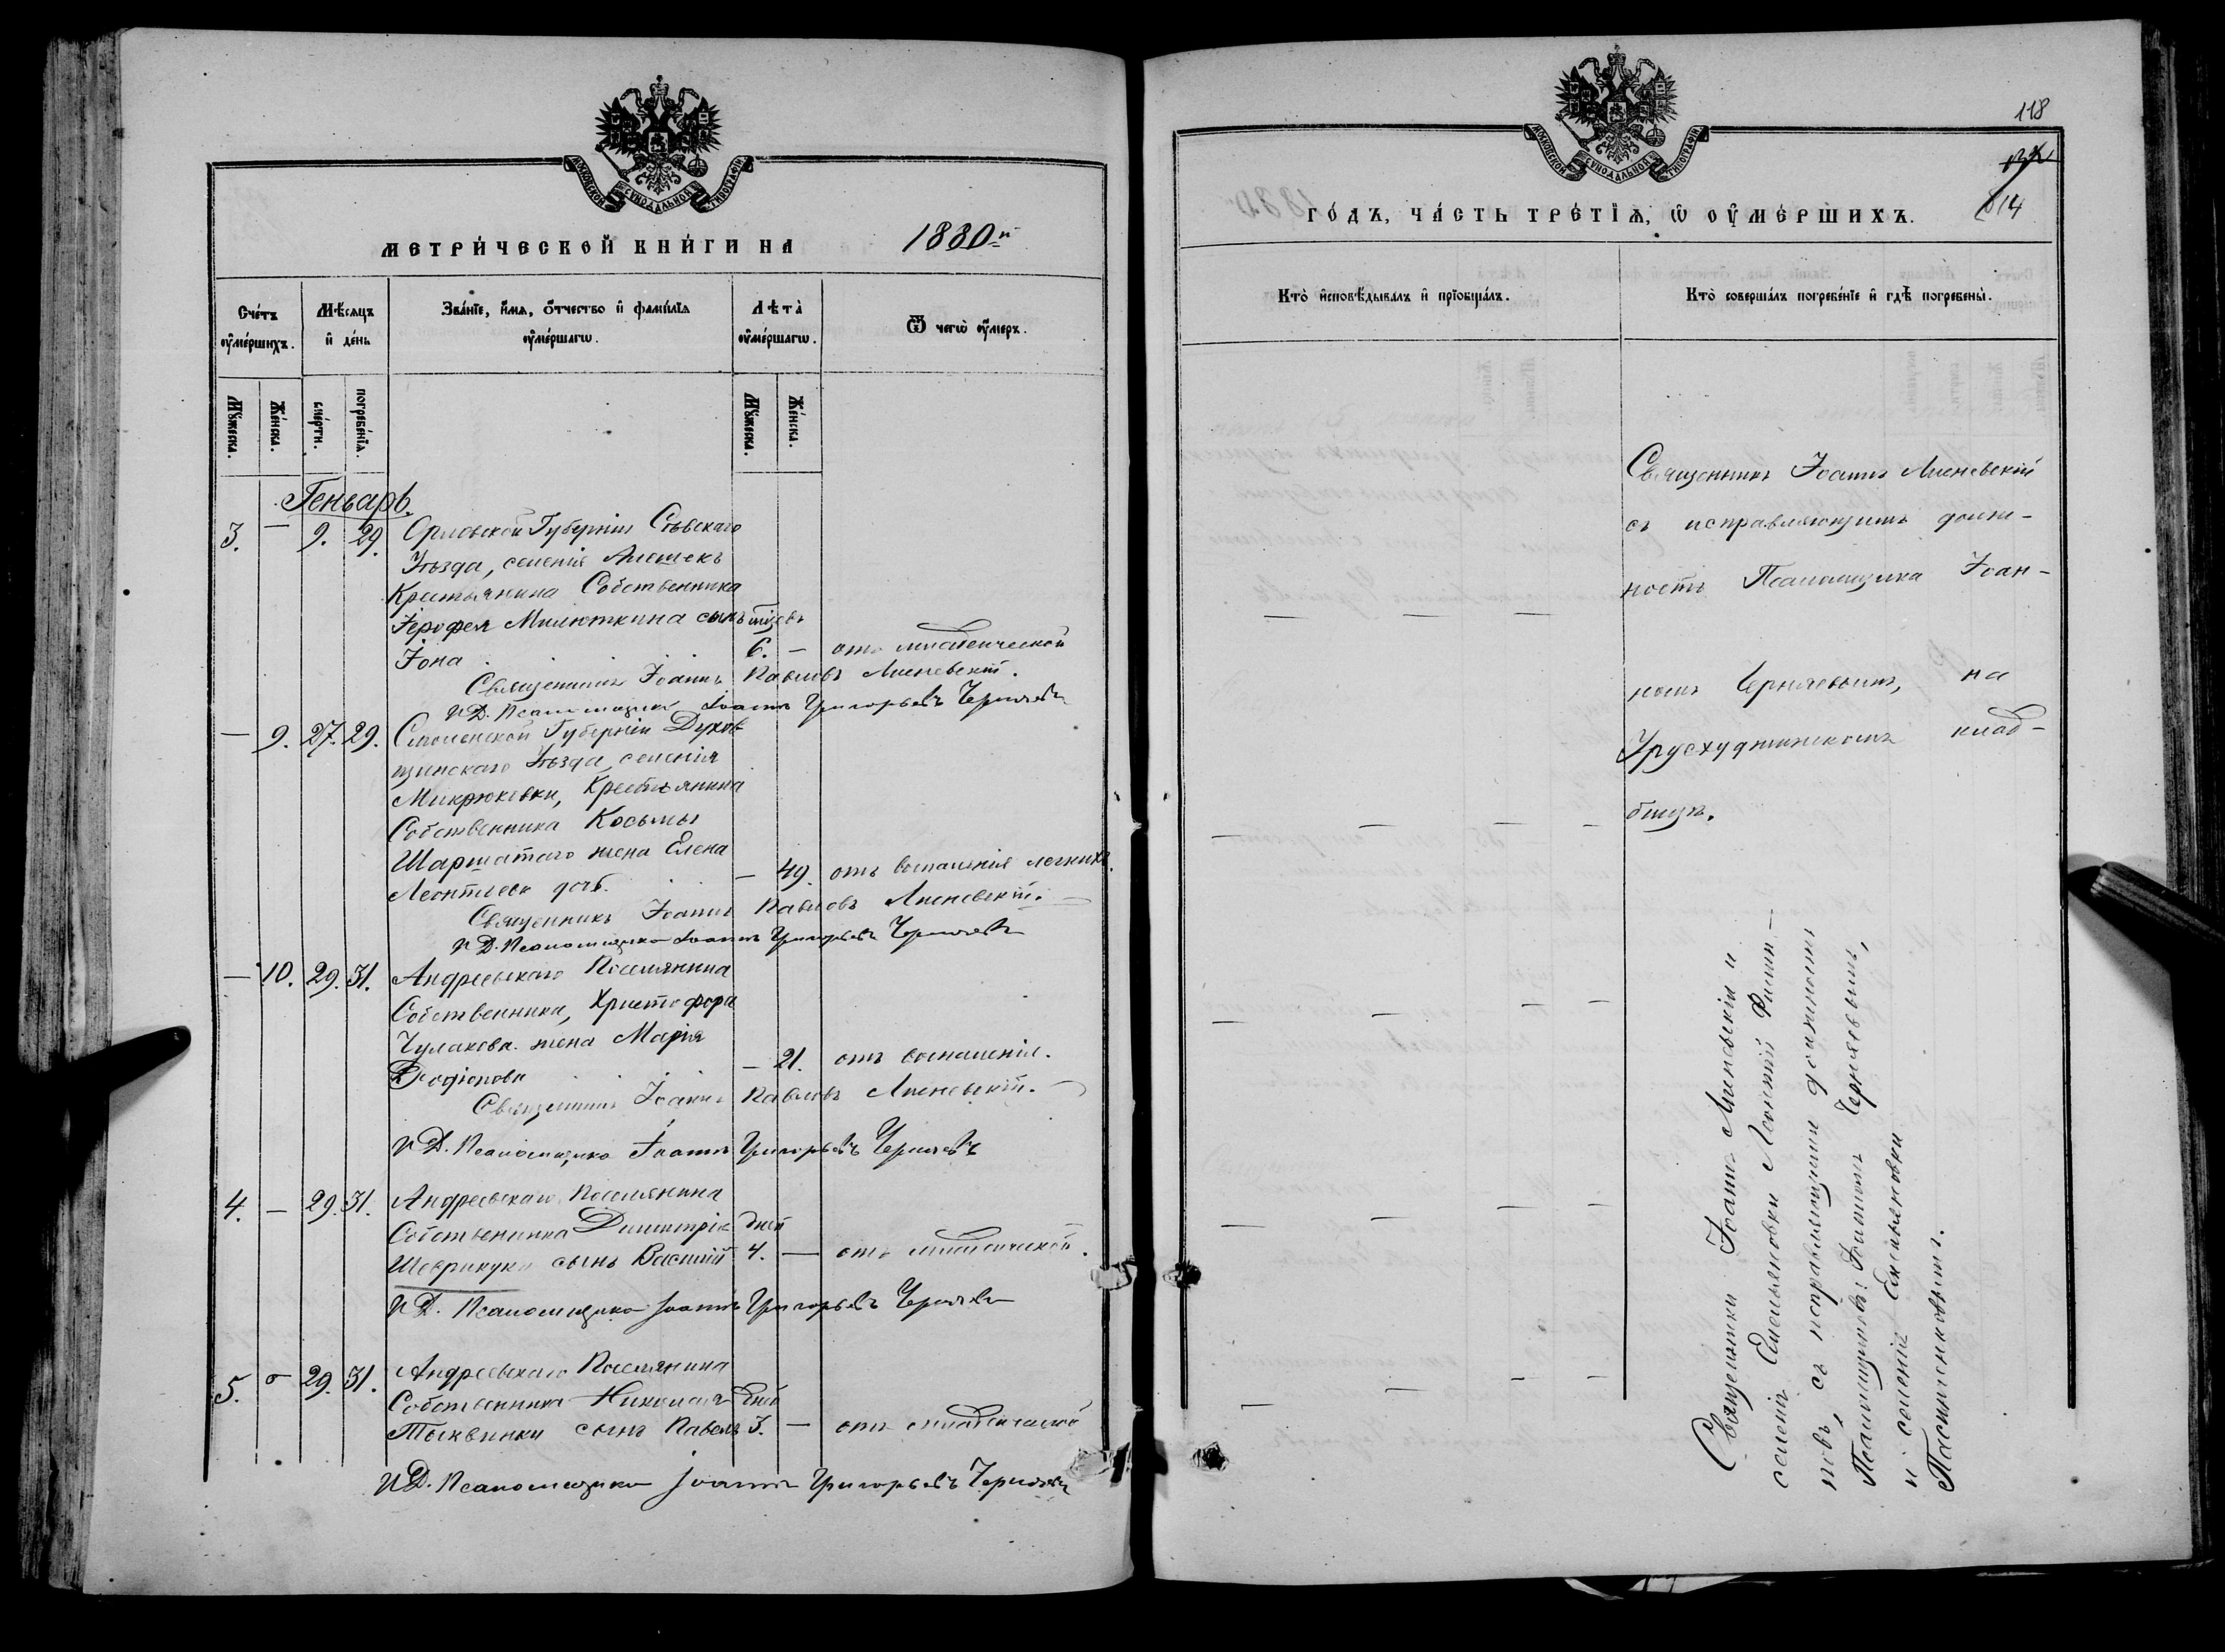 МОСКОВСКОЙ СѴНОДАЛЬНОЙ ТИПОГРАФІИ
МЕТРИ́ЧЕСКОЙ КНИ́ГИ НА 1880й
Сче́тъ ᲂу҆ме́ршихъ.
Мѣ́сяцъ и҆ де́нь
Зва́нїе, и҆́мѧ, ѻ҆́тчество и҆ фамѝлїѧ ᲂу҆ме́ршагѡ.
Лѣта̀ ᲂу҆ме́ршагѡ.
Ѿ чегѡ̀ ᲂу҆́меръ.
Мꙋ́жеска.
Же́нска.
сме́рти.
погребе́нїѧ.
Мꙋ́жеска.
Же́нска.
Генварь.
3. — 9. 29. Орловской Губерніи Сѣвскаго
Уѣзда, селенія Алешекъ
Крестьянина Собственника
Іерофея Милюткина сынъ мѣсъ
Іона 6. — отъ младенческой
Священникъ Іоаннъ Павловъ Лисневскій.
И Д. Псаломщика Іоаннъ Григорьевъ Чернявъ
— 9. 27. 29. Смоленской Губерніи Духов-
щинскаго Уѣзда, селенія
Микрюковки, Крестьянина
Собственника Косьмы
Шаршатаго жена Елена
Леонтьева дочь. — 49. отъ воспаленія легкихъ.
Священникъ Іоаннъ Павловъ Лисневскій.
И Д. Псаломщика Іоаннъ Григорьевъ Чернявъ
— 10. 29. 31. Андреевскаго Поселянина
Собственника, Христофора
Чулакова жена Марія
Родіонова — 21. отъ воспаленія.
Священникъ Іоаннъ Павловъ Лисневскій.
И Д. Псаломщика Іоаннъ Григорьевъ Чернявъ
4. — 29. 31. Андреевскаго Поселянина
Собственника Димитрія дней
Шеврикуки сынъ Василій 4. — отъ младенческой.
И Д. Псаломщика Іоаннъ Григорьевъ Чернявъ
5. — 29. 31. Андреевскаго Поселянина
Собственника Николая дней
Тыквинки сынъ Павелъ 3. — отъ младенческой
И Д. Псаломщика Іоаннъ Григорьевъ Чернявъ
118
814
МОСКОВСКОЙ СѴНОДАЛЬНОЙ ТИПОГРАФІИ
ГО́ДЪ, ЧА́СТЬ ТРЕ́ТЇѦ, Ѡ҆ ОУ҆МЕ́РШИХЪ.
Кто̀ и҆сповѣ́дывалъ и҆ прїѻбща́лъ.
Кто̀ соверша́лъ погребе́нїе и҆ гдѣ̀ погребены̀.
Священникъ Іоаннъ Лисневскій
съ исправляющимъ долж-
ность Псаломщика Іоан-
номъ Чернявымъ, на
клад-
бищѣ.
Священники Іоаннъ Лисневскій и
селенія Емельяновки Леонтій
повъ, съ исправляющими должность
Псаломщиковъ: Іоанномъ Чернявымъ,
и селенія Емельяновки